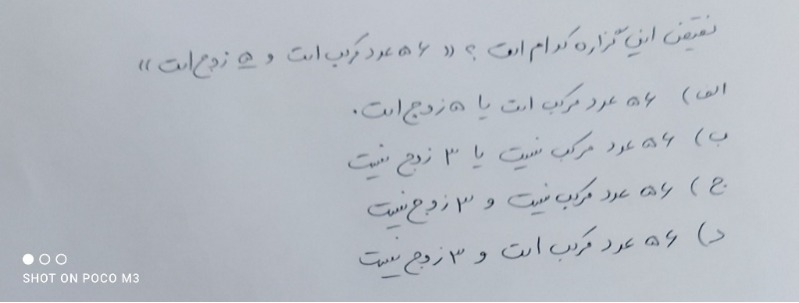 نقیض این گزاره کدام است ؟ «۵۶ عدد مرکب است و ۵ زوج است»
الف) ۵۶ عدد مرکب است یا ۵ زوج است.
ب) ۵۶ عدد مرکب نیست یا ۳ زوج نیست
ج) ۵۶ عدد مرکب نیست و ۳ زوج نیست
د) ۵۶ عدد مرکب است و ۳ زوج نیست
SHOT ON POCO M3